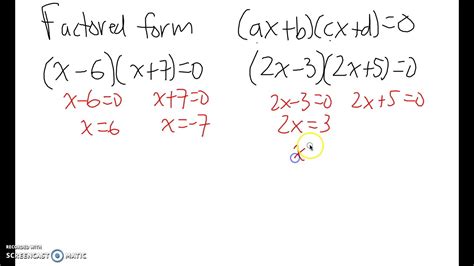 Factored form (ax+b)(cx+d)=0
(x-6)(x+7)=0 (2x-3)(2x+5)=0
x-6=0 x+7=0 2x-3=0 2x+5=0
x=6 x=-7 2x=3
x
RECORDED WITH
SCREENCAST MATIC